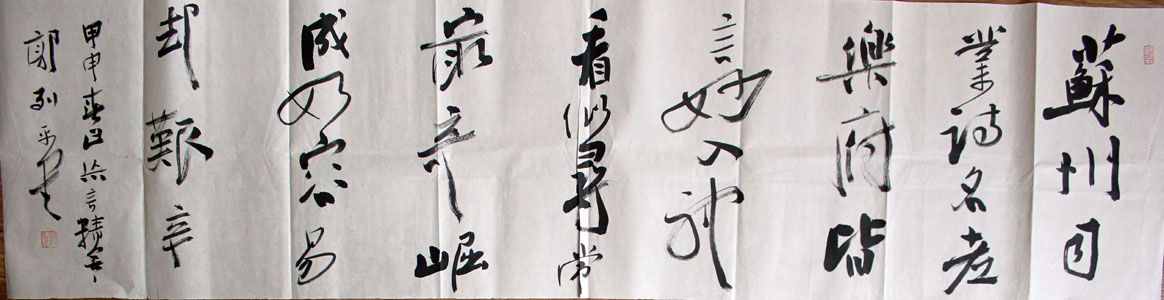 蘇州司
業詩名老
樂府皆
言妙入神
看似尋常
最奇崛
成如容易
却艱辛
甲申春日
郭列平書